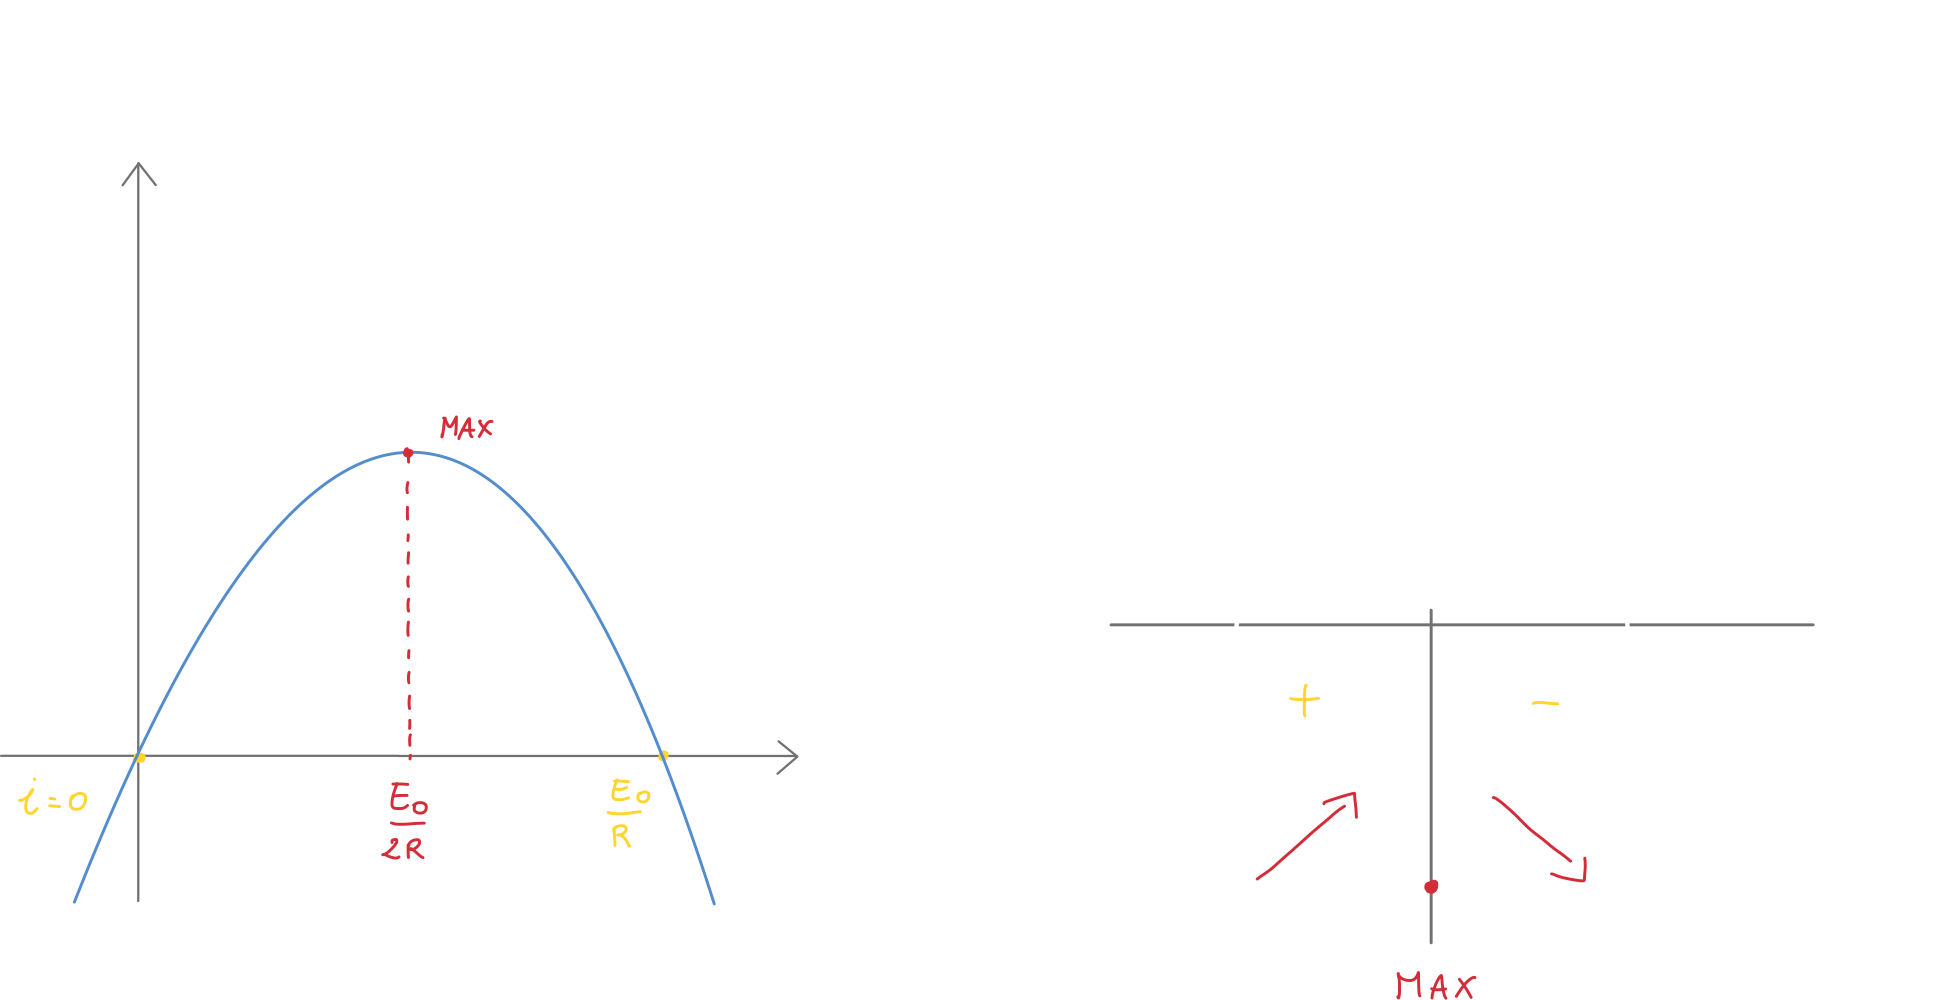 MAX
i=0
E₀
2R
E₀
R
+
-
MAX